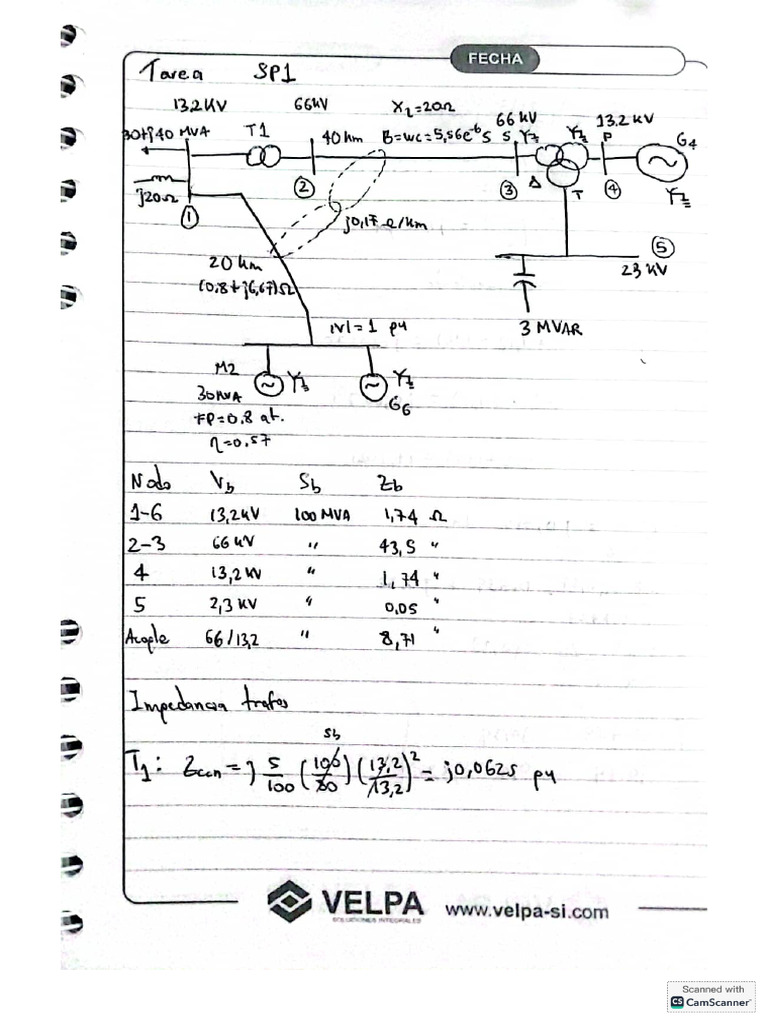 FECHA
Tarea SP1
13.2KV 66KV X_L=20Ω 66 KV 13.2 KV
30+j40 MVA T1 40 km B=wc=5,56e⁻⁶ S S Y Y P G4
② ③ Δ ④ Y
j20Ω T
① j0,17 Ω/km ⑤
20 km 23 KV
(0.8+j6,67)Ω
|V|=1 pu 3 MVAR
M2 Y Y
30MVA G6
FP=0.8 at.
η=0.87
Nodo V_b S_b Z_b
1-6 13,2KV 100 MVA 1,74 Ω
2-3 66 KV " 43,5 "
4 13,2 KV " 1,74 "
5 2,3 KV " 0,05 "
Acople 66/13,2 " 8,71 "
Impedancia trafos
Sb
T₁: Zccn = j 5/100 (100/80) (13,2/13,2)² = j0,0625 pu
VELPA www.velpa-si.com
SOLUCIONES INTEGRALES
Scanned with
CS CamScanner